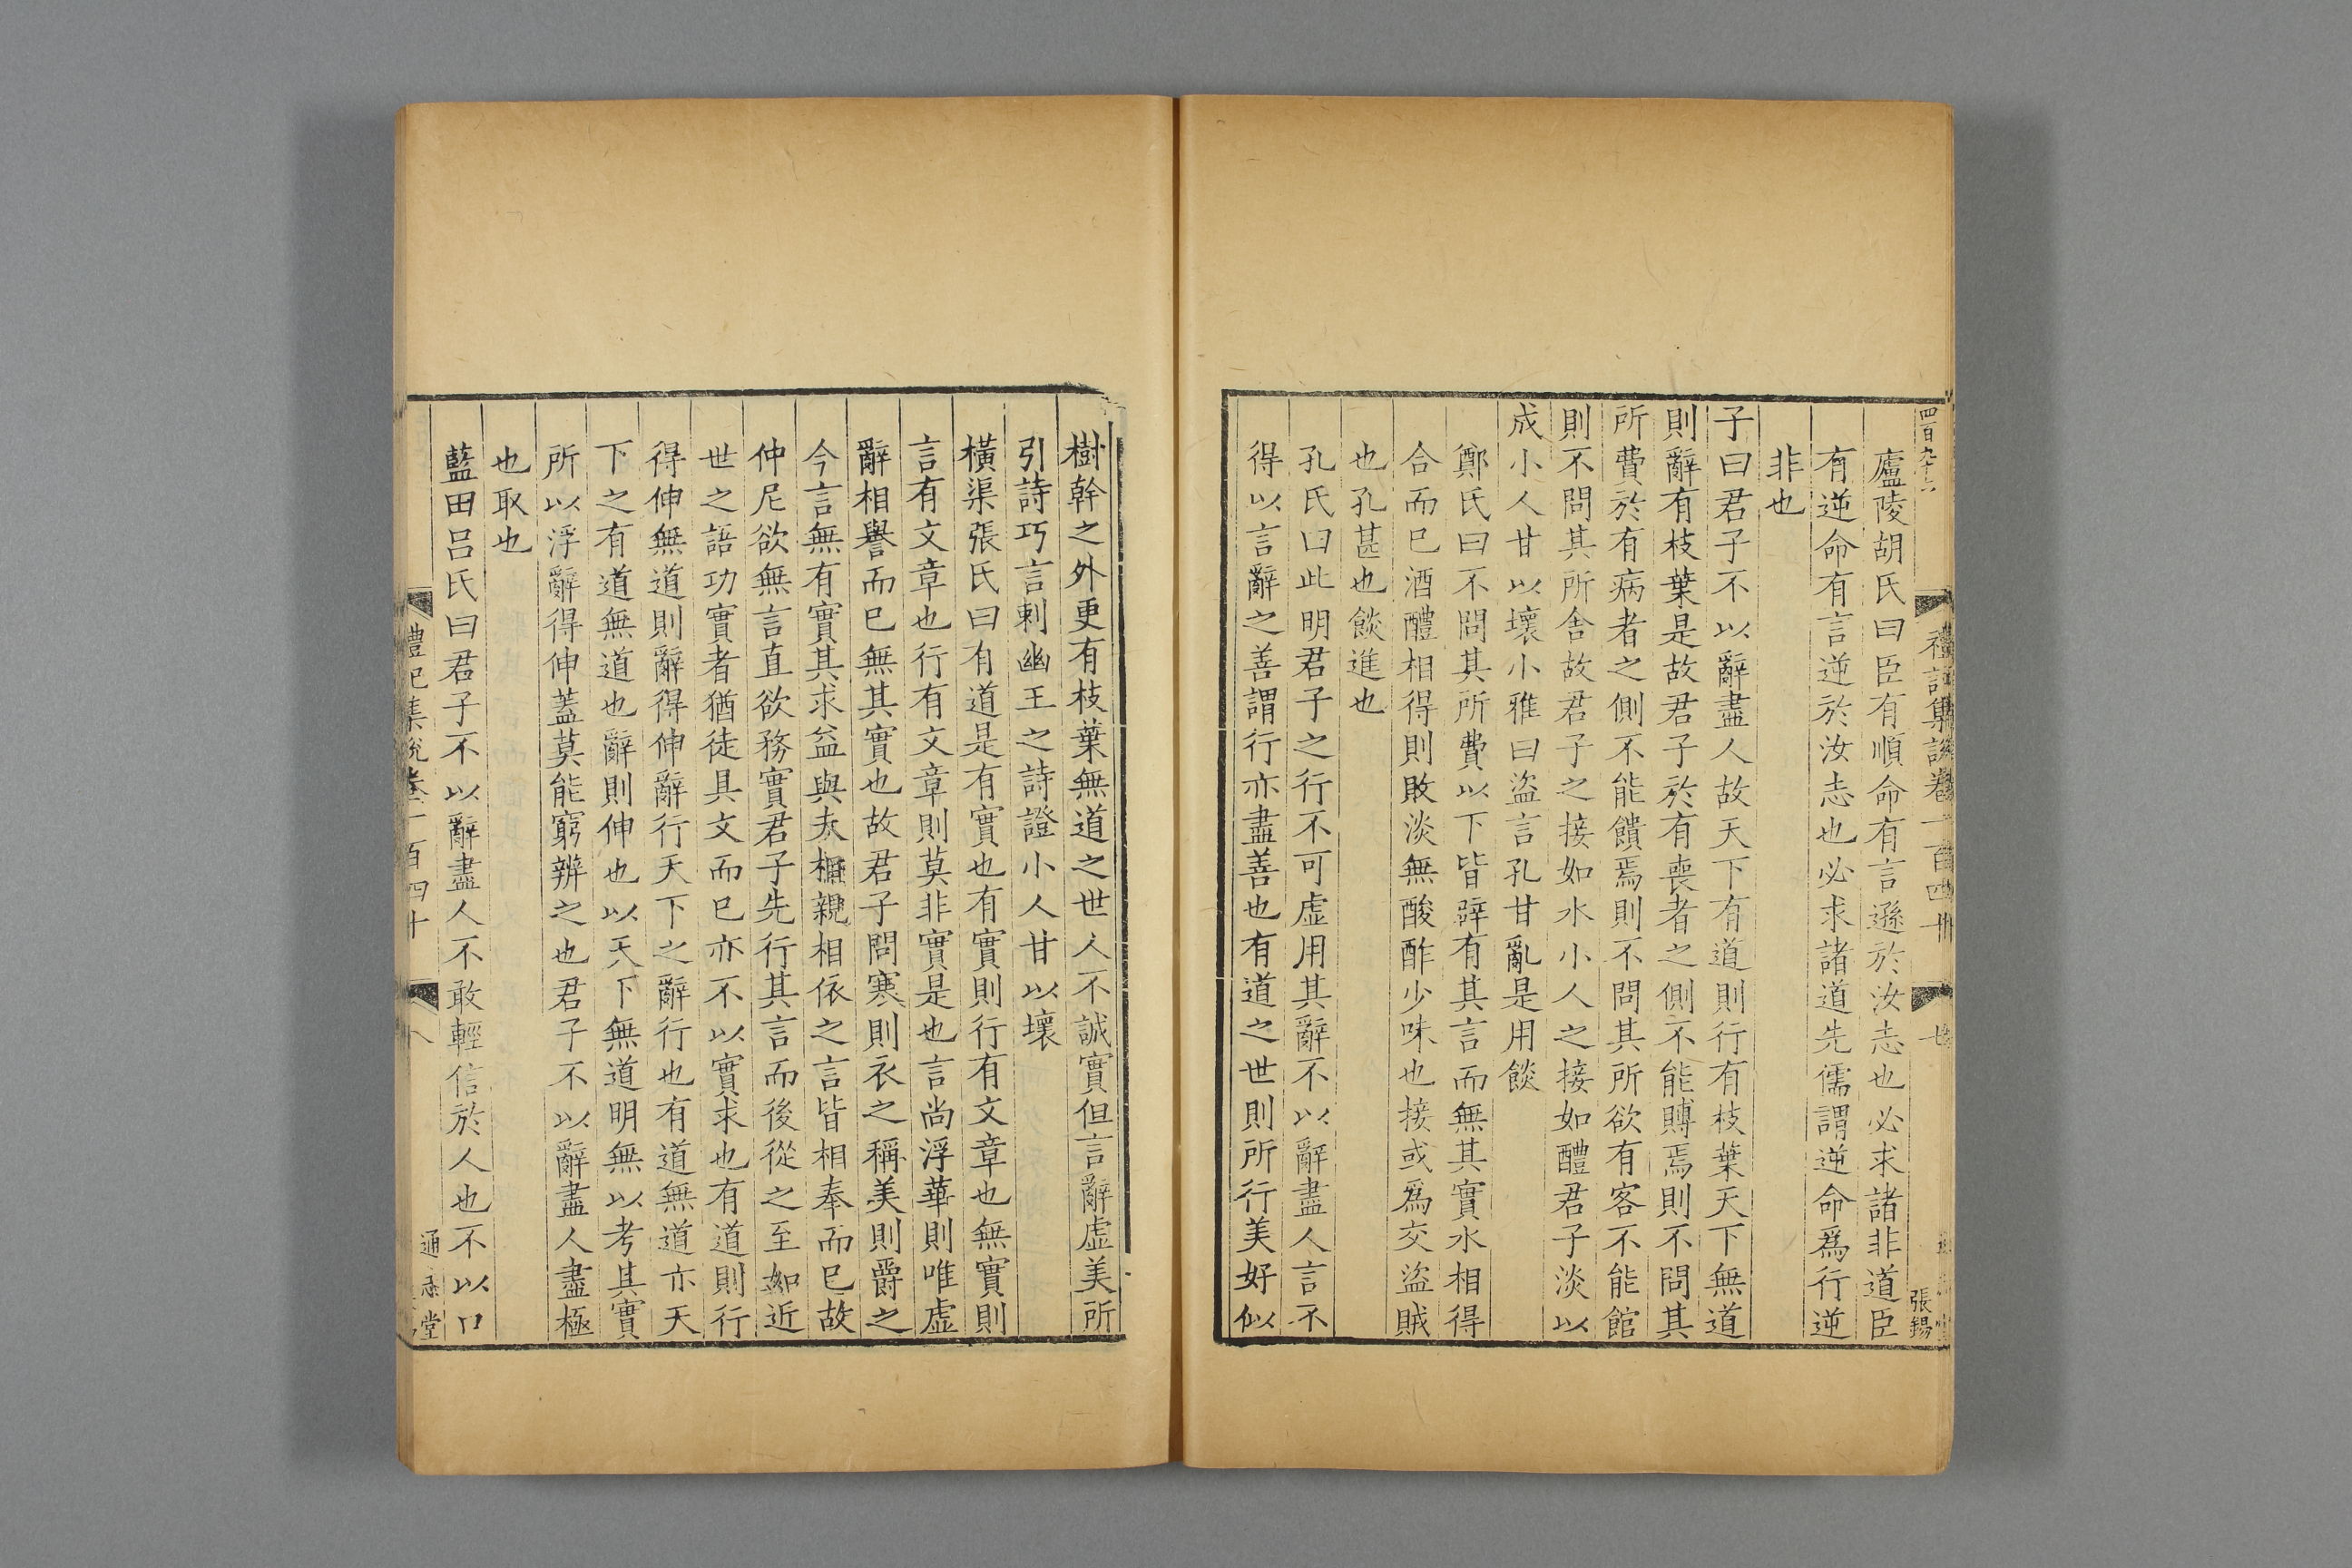 四百九十六
禮記集說卷一百四十
張錫
廬陵胡氏曰臣有順命有言遜於汝志也必求諸非道臣
有逆命有言逆於汝志也必求諸道先儒謂逆命爲行逆
非也
子曰君子不以辭盡人故天下有道則行有枝葉天下無道
則辭有枝葉是故君子於有喪者之側不能賻焉則不問其
所費於有病者之側不能饋焉則不問其所欲有客不能館
則不問其所舍故君子之接如水小人之接如醴君子淡以
成小人甘以壞小雅曰盜言孔甘亂是用餤
鄭氏曰不問其所費以下皆辟有其言而無其實水相得
合而已酒醴相得則敗淡無酸酢少味也接或爲交盜賊
也孔甚也餤進也
孔氏曰此明君子之行不可虛用其辭不以辭盡人言不
得以言辭之善謂行亦盡善也有道之世則所行美好似
樹幹之外更有枝葉無道之世人不誠實但言辭虛美所
引詩巧言刺幽王之詩證小人甘以壞
橫渠張氏曰有道是有實也有實則行有文章也無實則
言有文章也行有文章則莫非實是也言尚浮華則唯虛
辭相譽而已無其實也故君子問寒則衣之稱美則爵之
今言無有實其求益與夫櫋親相依之言皆相奉而已故
仲尼欲無言直欲務實君子先行其言而後從之至如近
世之語功實者猶徒具文而已亦不以實求也有道則行
得伸無道則辭得伸辭行天下之辭行也有道無道亦天
下之有道無道也辭則伸也以天下無道明無以考其實
所以浮辭得伸蓋莫能窮辨之也君子不以辭盡人盡極
也取也
藍田呂氏曰君子不以辭盡人不敢輕信於人也不以口
禮記集說卷一百四十
八
通志堂